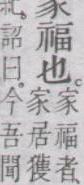 家福也。家福者家居獲
詔曰。今吾聞